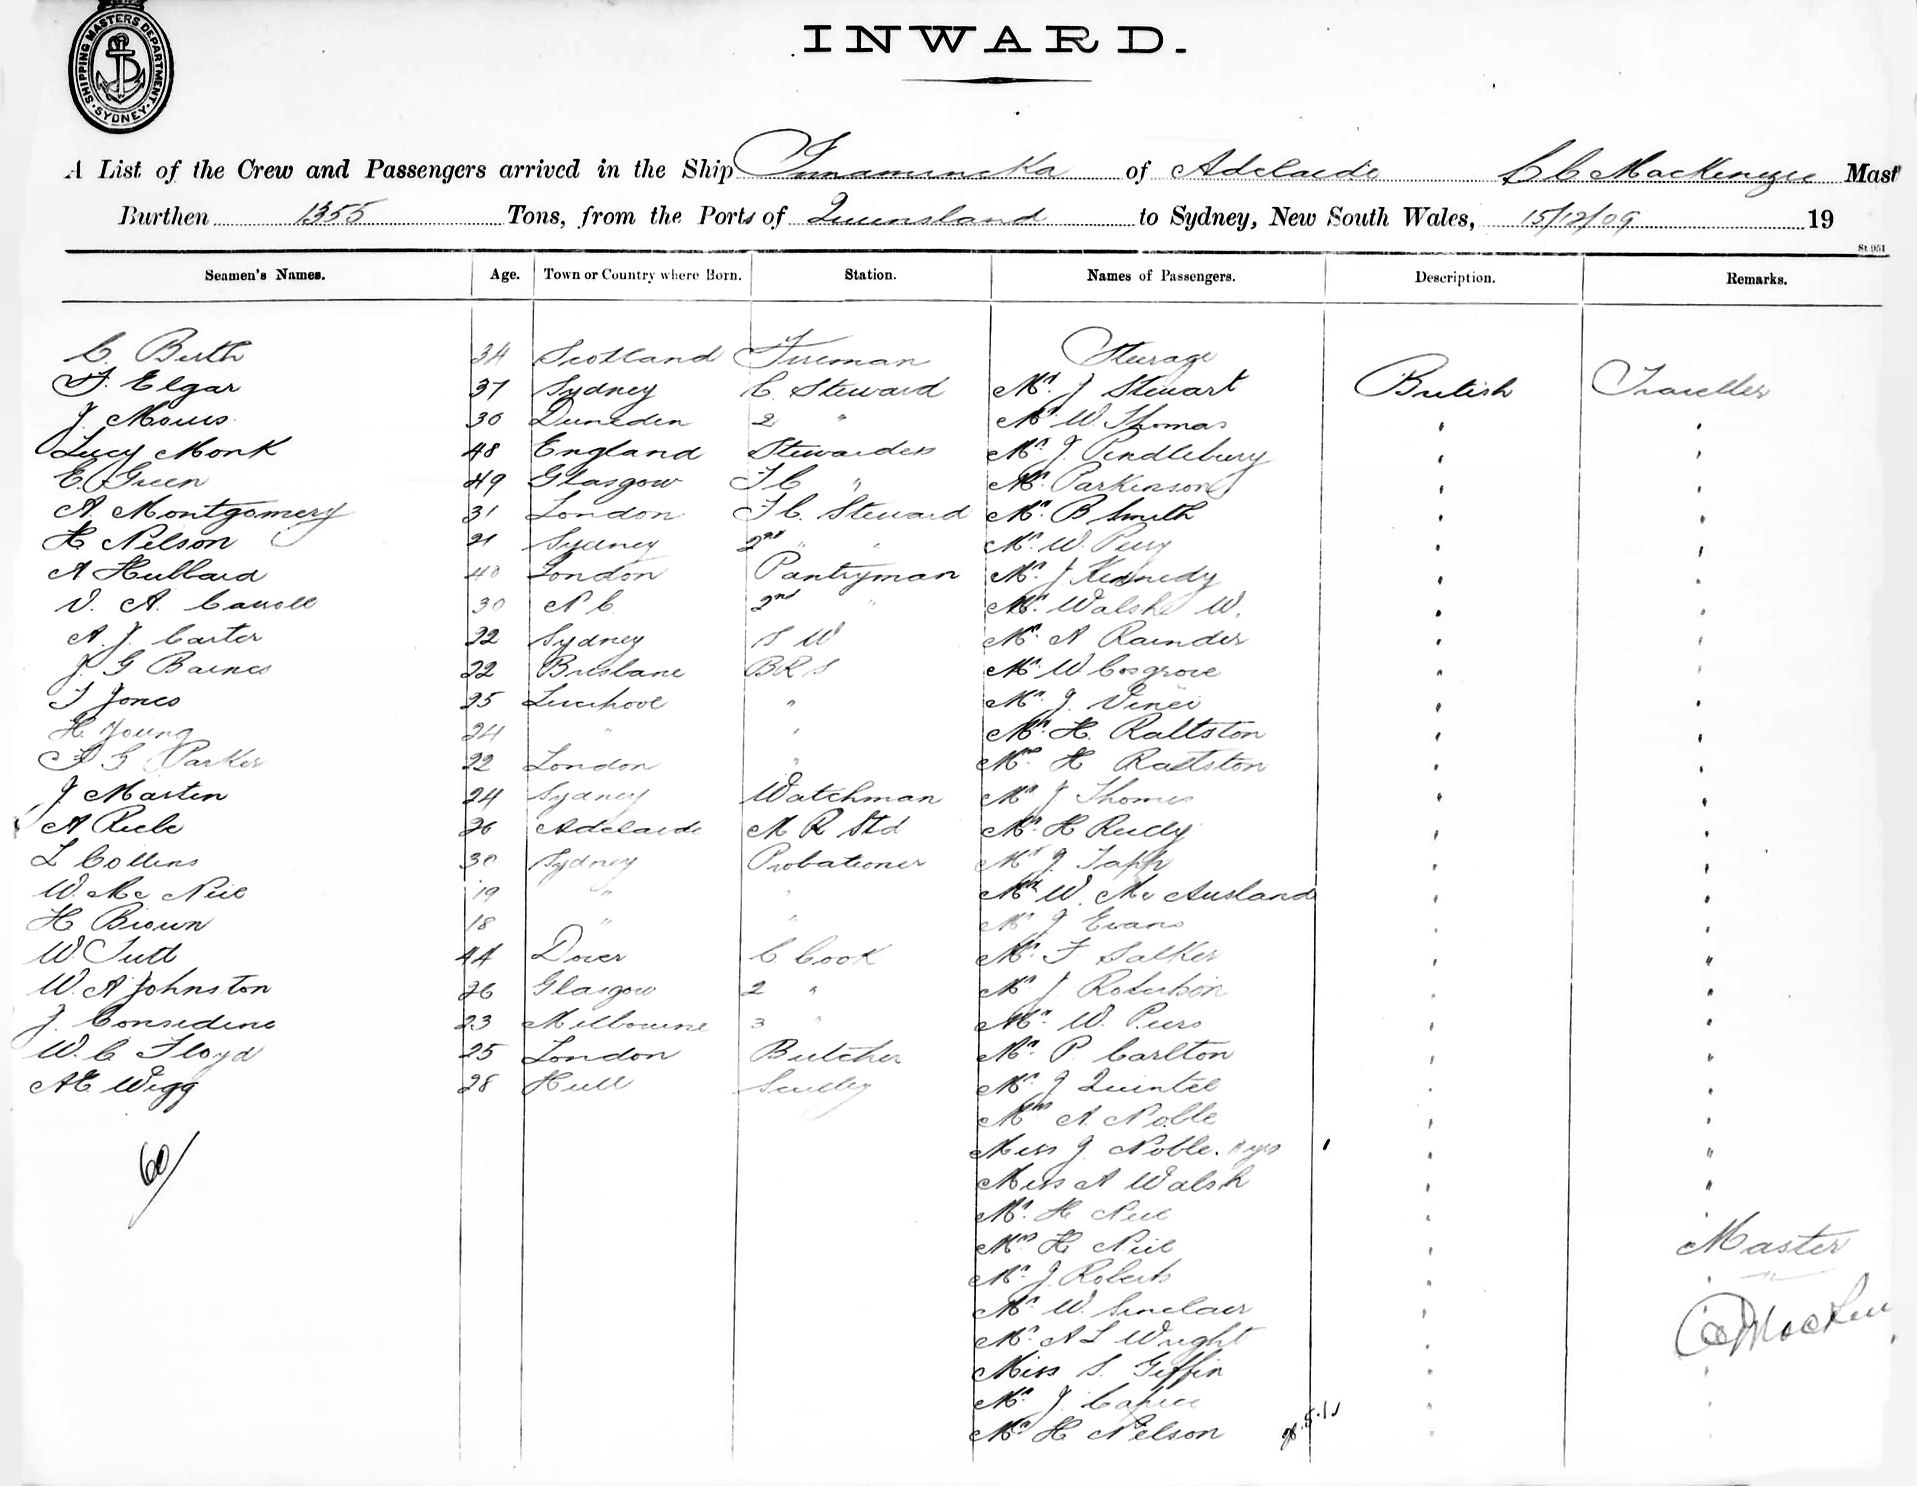 SHIPPING MASTERS DEPARTMENT · SYDNEY ·
INWARD.
A List of the Crew and Passengers arrived in the Ship Innamincka of Adelaide C C MacKenzie Mast
Burthen 1355 Tons, from the Ports of Queensland to Sydney, New South Wales, 15/12/09 19
St 951
Seamen's Names. Age. Town or Country where Born. Station. Names of Passengers. Description. Remarks.
C. Berth 34 Scotland Fireman Steerage
F. Elgar 37 Sydney C. Steward Mr J Stewart British Traveller
J. Morris 30 Duneden 2 " Mr W. Thomas " "
Lucy Monk 48 England Stewardess Mr J. Pendlebury " "
E. Green 49 Glasgow F C " Mr Parkinson " "
A. Montgomery 31 London F C. Steward Mr B Smith " "
H Nelson 21 Sydney 2nd " " Mr W. Perry " "
A Hubbard 40 London Pantryman Mr J Kennedy " "
V. A. Carroll 30 N C 2nd " Mr Walsh W. " "
A. J. Carter 22 Sydney S W Mr A Rainder " "
J. G Barnes 22 Brisbane B R S Mr W Cosgrove " "
T Jones 25 Liverpool " Mr J. Vinei " "
H. Young 24 " " Mr H. Raltston " "
F G Parker 22 London " Mrs H Raltston " "
J Martin 24 Sydney Watchman Mr J Thomas " "
A Riele 26 Adelaide M R Std Mr H Reidy " "
L Collins 30 Sydney Probationer Mr J. Tapp " "
W. Mc Neil 19 " " Mr W. Mc Ausland " "
H Brown 18 " " Mr J Evans " "
W Tutt 44 Dover C Cook Mr F Salker " "
W. A Johnston 26 Glasgow 2 " Mr J Robertson " "
J. Considine 23 Melbourne 3 " Mr W. Piers " "
W. C Floyd 25 London Butcher Mr P. Carlton " "
A E Wigg 28 Hull Scullry Mr J Quintel " "
Mrs A. Noble " "
60/ Miss J Noble. yrs " " "
Miss A Walsh " "
Mr H Neil " "
Mrs H Neil " Master
Mr J. Roberts " "
Mr W. Sinclair "
Mr A L Wright "
Miss S. Giffin " "
Mr J. "
Mr H Nelson "